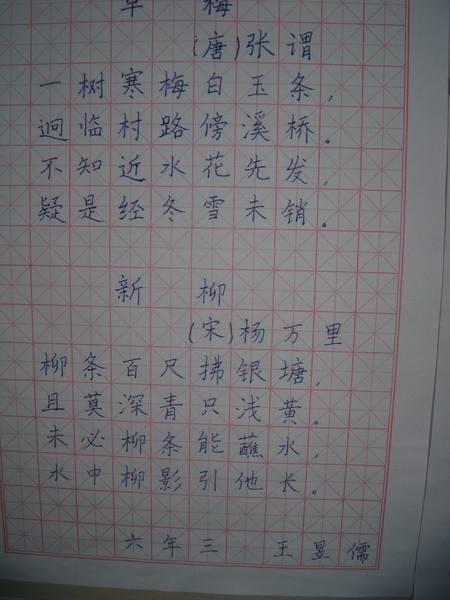 早 梅
(唐)张谓
一树寒梅白玉条,
迥临村路傍溪桥。
不知近水花先发,
疑是经冬雪未销。
新 柳
(宋)杨万里
柳条百尺拂银塘,
且莫深青只浅黄。
未必柳条能蘸水,
水中柳影引他长。
六年三 王昱儒